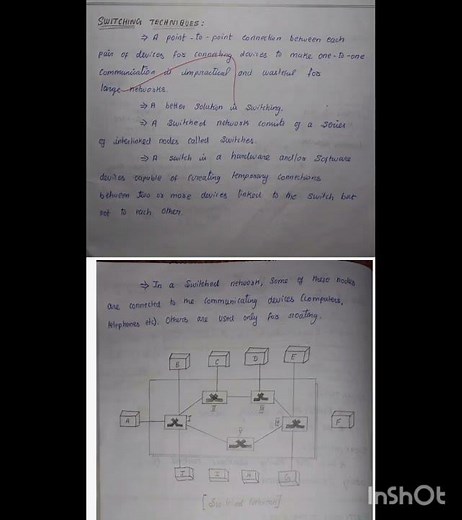 SWITCHING TECHNIQUES:
⇒ A point-to-point connection between each
pair of devices for connecting devices to make one-to-one
communication is impractical and wasteful for
large networks.
⇒ A better solution is switching.
⇒ A switched network consists of a series
of interlinked nodes called switches.
⇒ A switch is a hardware and/or software
devices capable of creating temporary connections
between two or more devices linked to the switch but
not to each other.
⇒ In a switched network, some of these nodes
are connected to the communicating devices (computers,
telephones etc). Others are used only for routing.
B C D E
A
F
[Switched Network]
InShOt